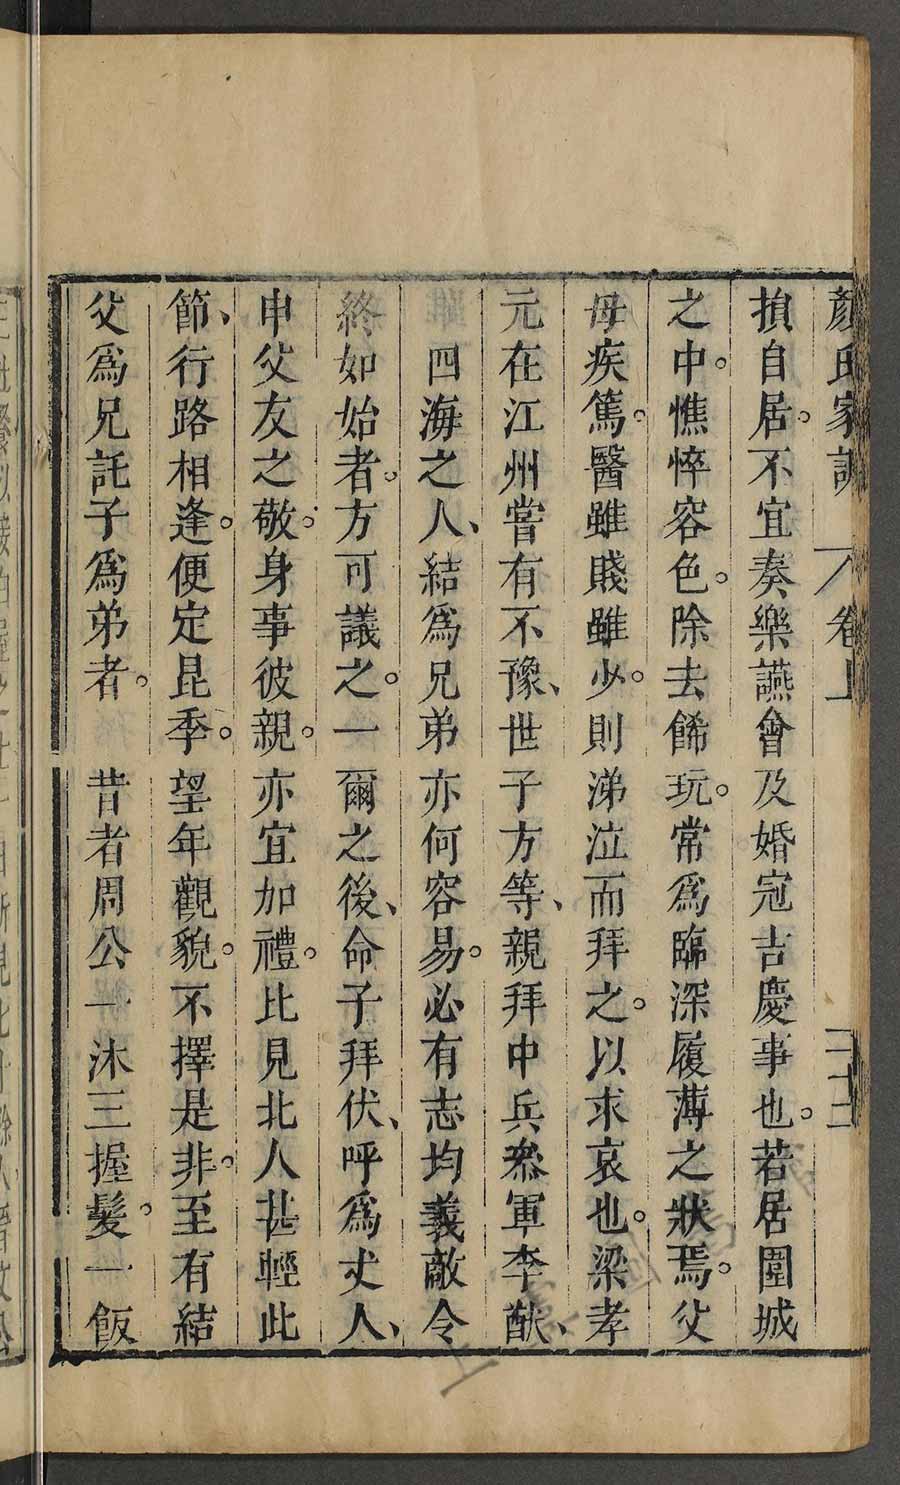 顏氏家訓 卷上 二十二
損自居。不宜奏樂讌會及婚冠吉慶事也。若居圍城
之中。憔悴容色。除去飾玩。常爲臨深履薄之狀焉。父
母疾篤。醫雖賤雖少。則涕泣而拜之。以求哀也。梁孝
元在江州嘗有不豫、世子方等、親拜中兵叅軍李猷、
四海之人、結爲兄弟亦何容易。必有志均義敵令
終如始者。方可議之。一爾之後、命子拜伏、呼爲丈人、
申父友之敬。身事彼親。亦宜加禮。比見北人甚輕此
節、行路相逢。便定昆季。望年觀貌。不擇是非。至有結
父爲兄託子爲弟者。昔者周公一沐三握髮。一飯